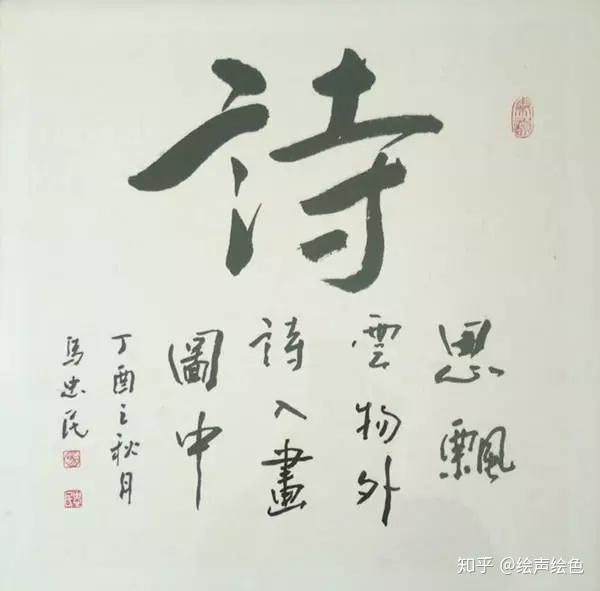 詩
思飄
雲物外
詩入畫
圖中
丁酉之秋月
馬忠民
知乎 @绘声绘色